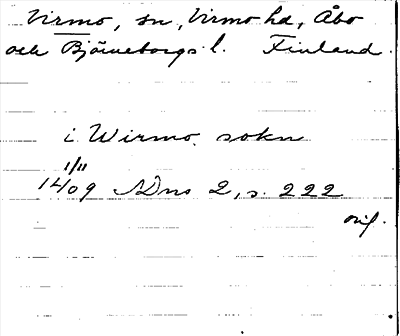 Virmo, sn, Virmo hd, Åbo
och Björneborgs l. Finland.
i Wirmo sokn
1/11
1409 ÄDns 2, s. 222
orig.